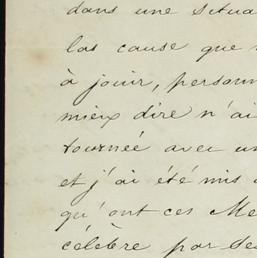 dans une situa
las cause que
à jouir, personn
mieux dire n'ai
tournée avec un
et j'ai été mis
qu'ont ces Me
célèbre par se